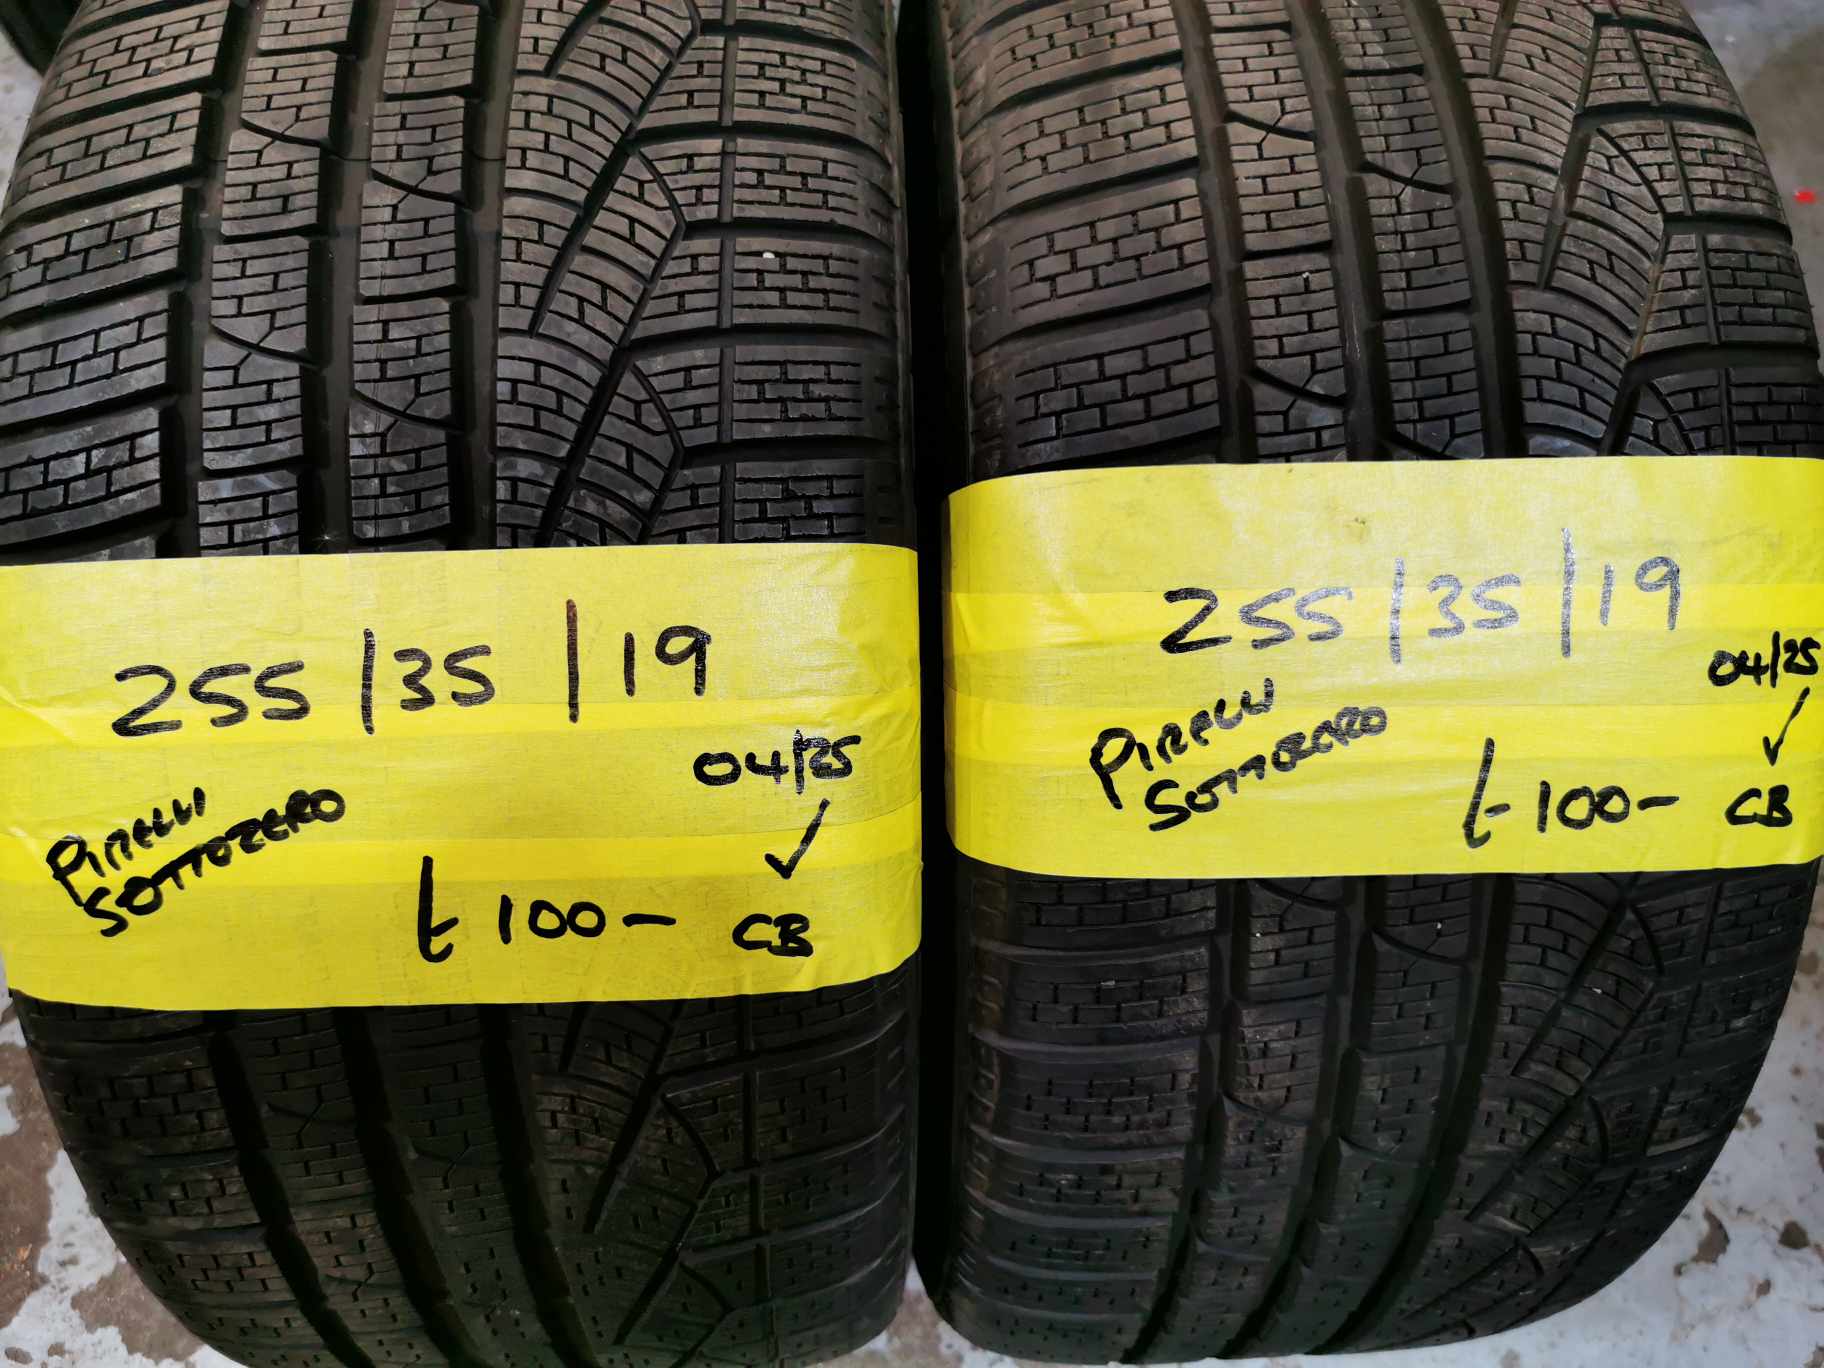 255/35/19
04/25
PIRELLI
SOTTOZERO
£100-
CB
255/35/19
04/25
PIRELLI
SOTTOZERO
£100-
CB